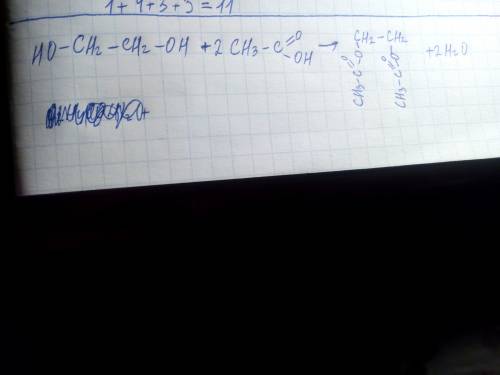 1+4+3+3=11
HO-CH₂-CH₂-OH+2CH₃-C=O-OH→CH₂-CH₂+2H₂O
CH₃-C=O-O
CH₃-C=O-O